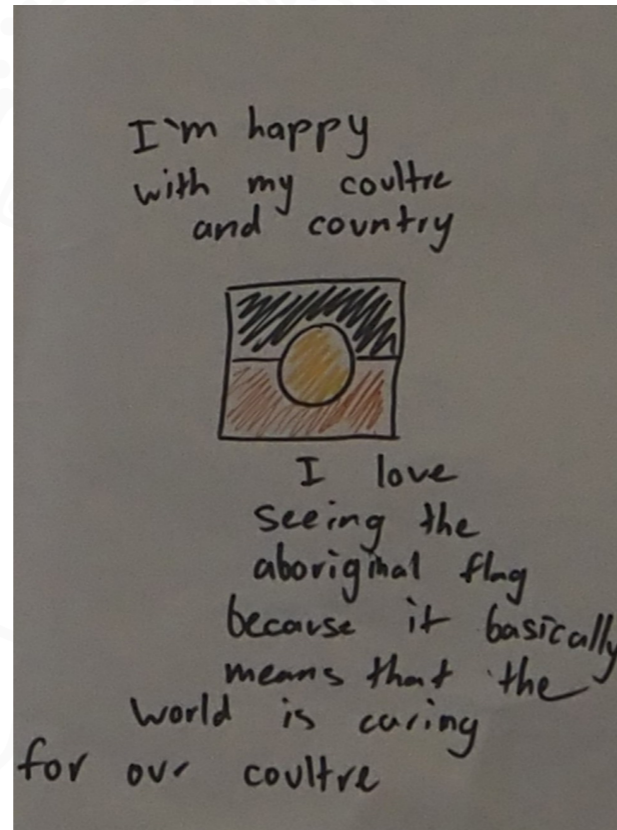 I'm happy
with my coultre
and country
I love
seeing the
aboriginal flag
because it basically
means that the
world is caring
for our coultre